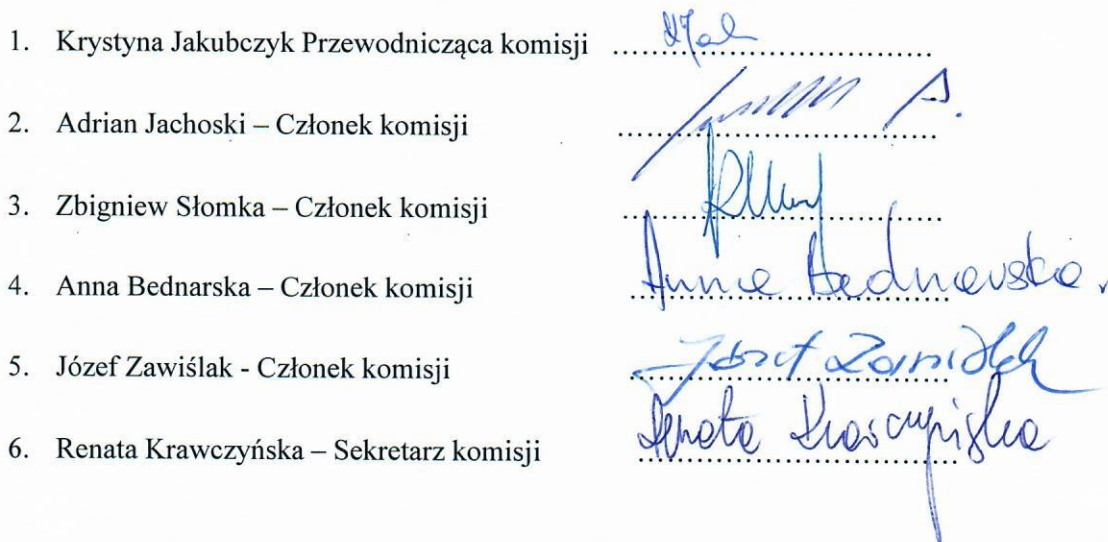 1. Krystyna Jakubczyk Przewodnicząca komisji ........................................
2. Adrian Jachoski – Członek komisji ........................................
3. Zbigniew Słomka – Członek komisji ........................................
4. Anna Bednarska – Członek komisji ........................................ Anna Bednarska.
5. Józef Zawiślak - Członek komisji ........................................ Józef Zawiślak
6. Renata Krawczyńska – Sekretarz komisji ........................................ Renata Krawczyńska